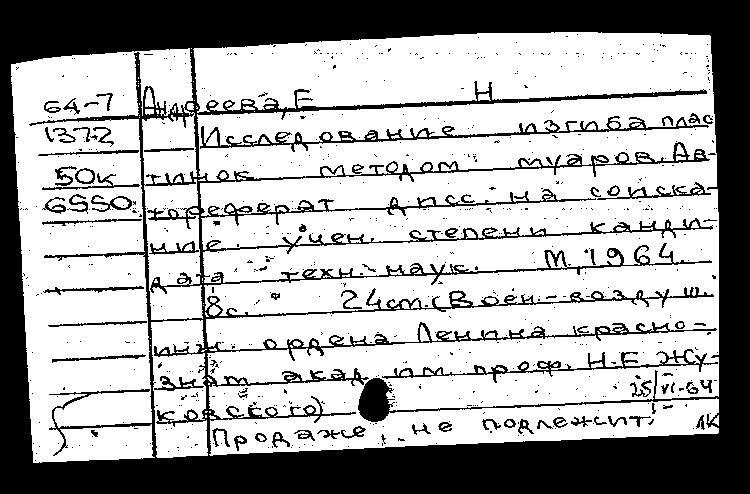 64-7 Андреева, Е Н
1372 Исследование изгиба плас
50к тинок методом муаров. Ав-
6550 тореферат дисс. на соиска-
ние учен. степени канди-
дата техн. наук. М, 1964.
8с. 24cm. (Воен.-воздуш.
инж. ордена Ленина красно-
знам. акад им. проф. Н.Е. Жу-
ковского) 25/VI-64
Продаже не подлежит. 1К